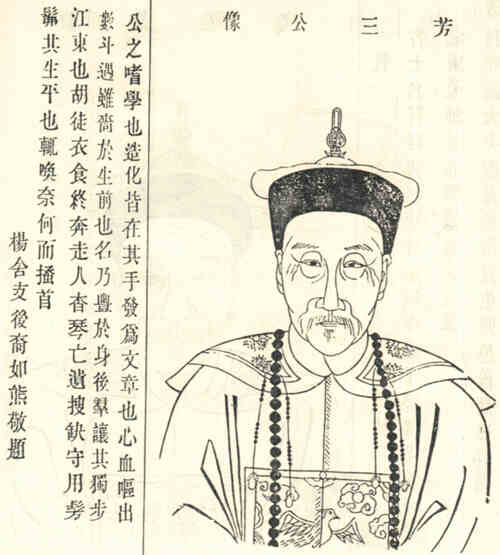 芳三公像
公之嗜學也造化皆在其手發爲文章也心血嘔出
數斗遇雖嗇於生前也名乃豐於身後羣讓其獨步
江東也胡徒衣食終奔走人杳琴亡遺搜缺守用髣
髴其生平也輒喚奈何而搔首
楊舍支後裔如熊敬題